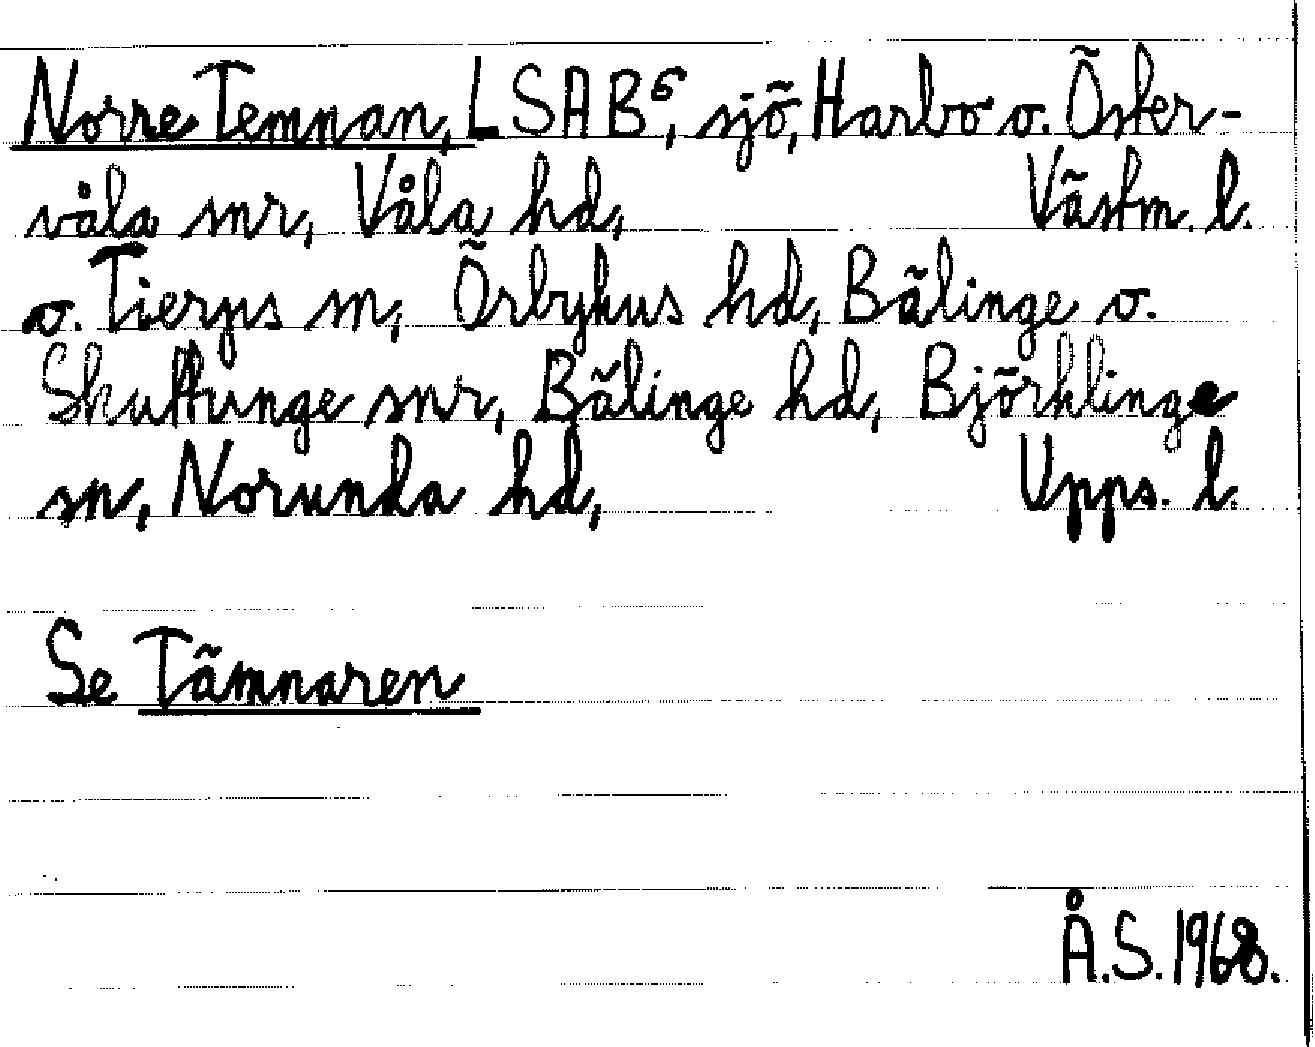 Norre Temnan, LSAB⁶, sjö, Harbo o. Öster-
våla snr, Våla hd, Västm. l.
o. Tierps sn, Örbyhus hd, Bälinge o.
Skuttunge snr, Bälinge hd, Björklinge
sn, Norunda hd, Upps. l.
Se Tämnaren
Å.S. 1968.